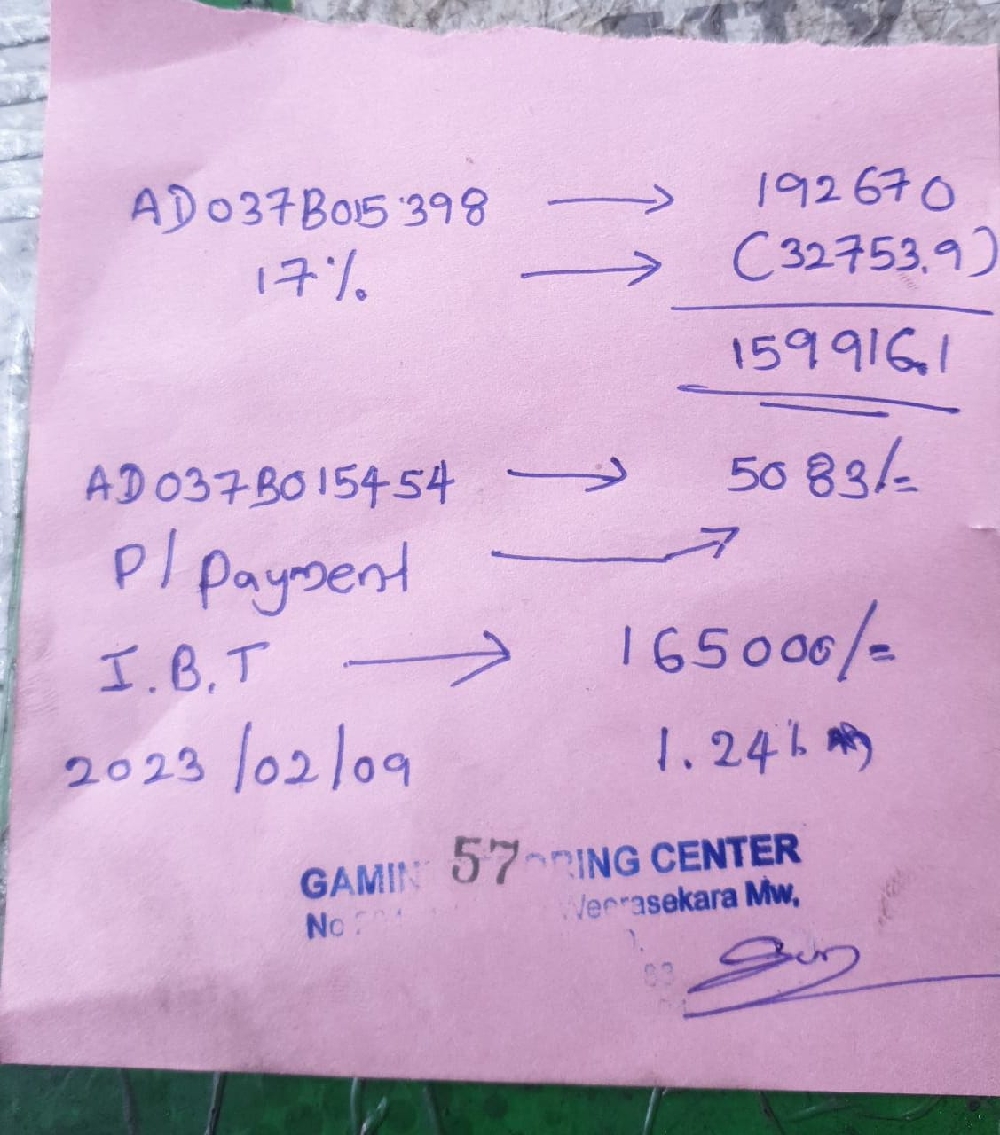 AD037B015398 → 192670
17% → (32753.9)
159916.1
AD037B015454 → 5083/=
P/ Payment →
I.B.T → 165000/=
2023/02/09 1.24
57
CENTER
No Mw,